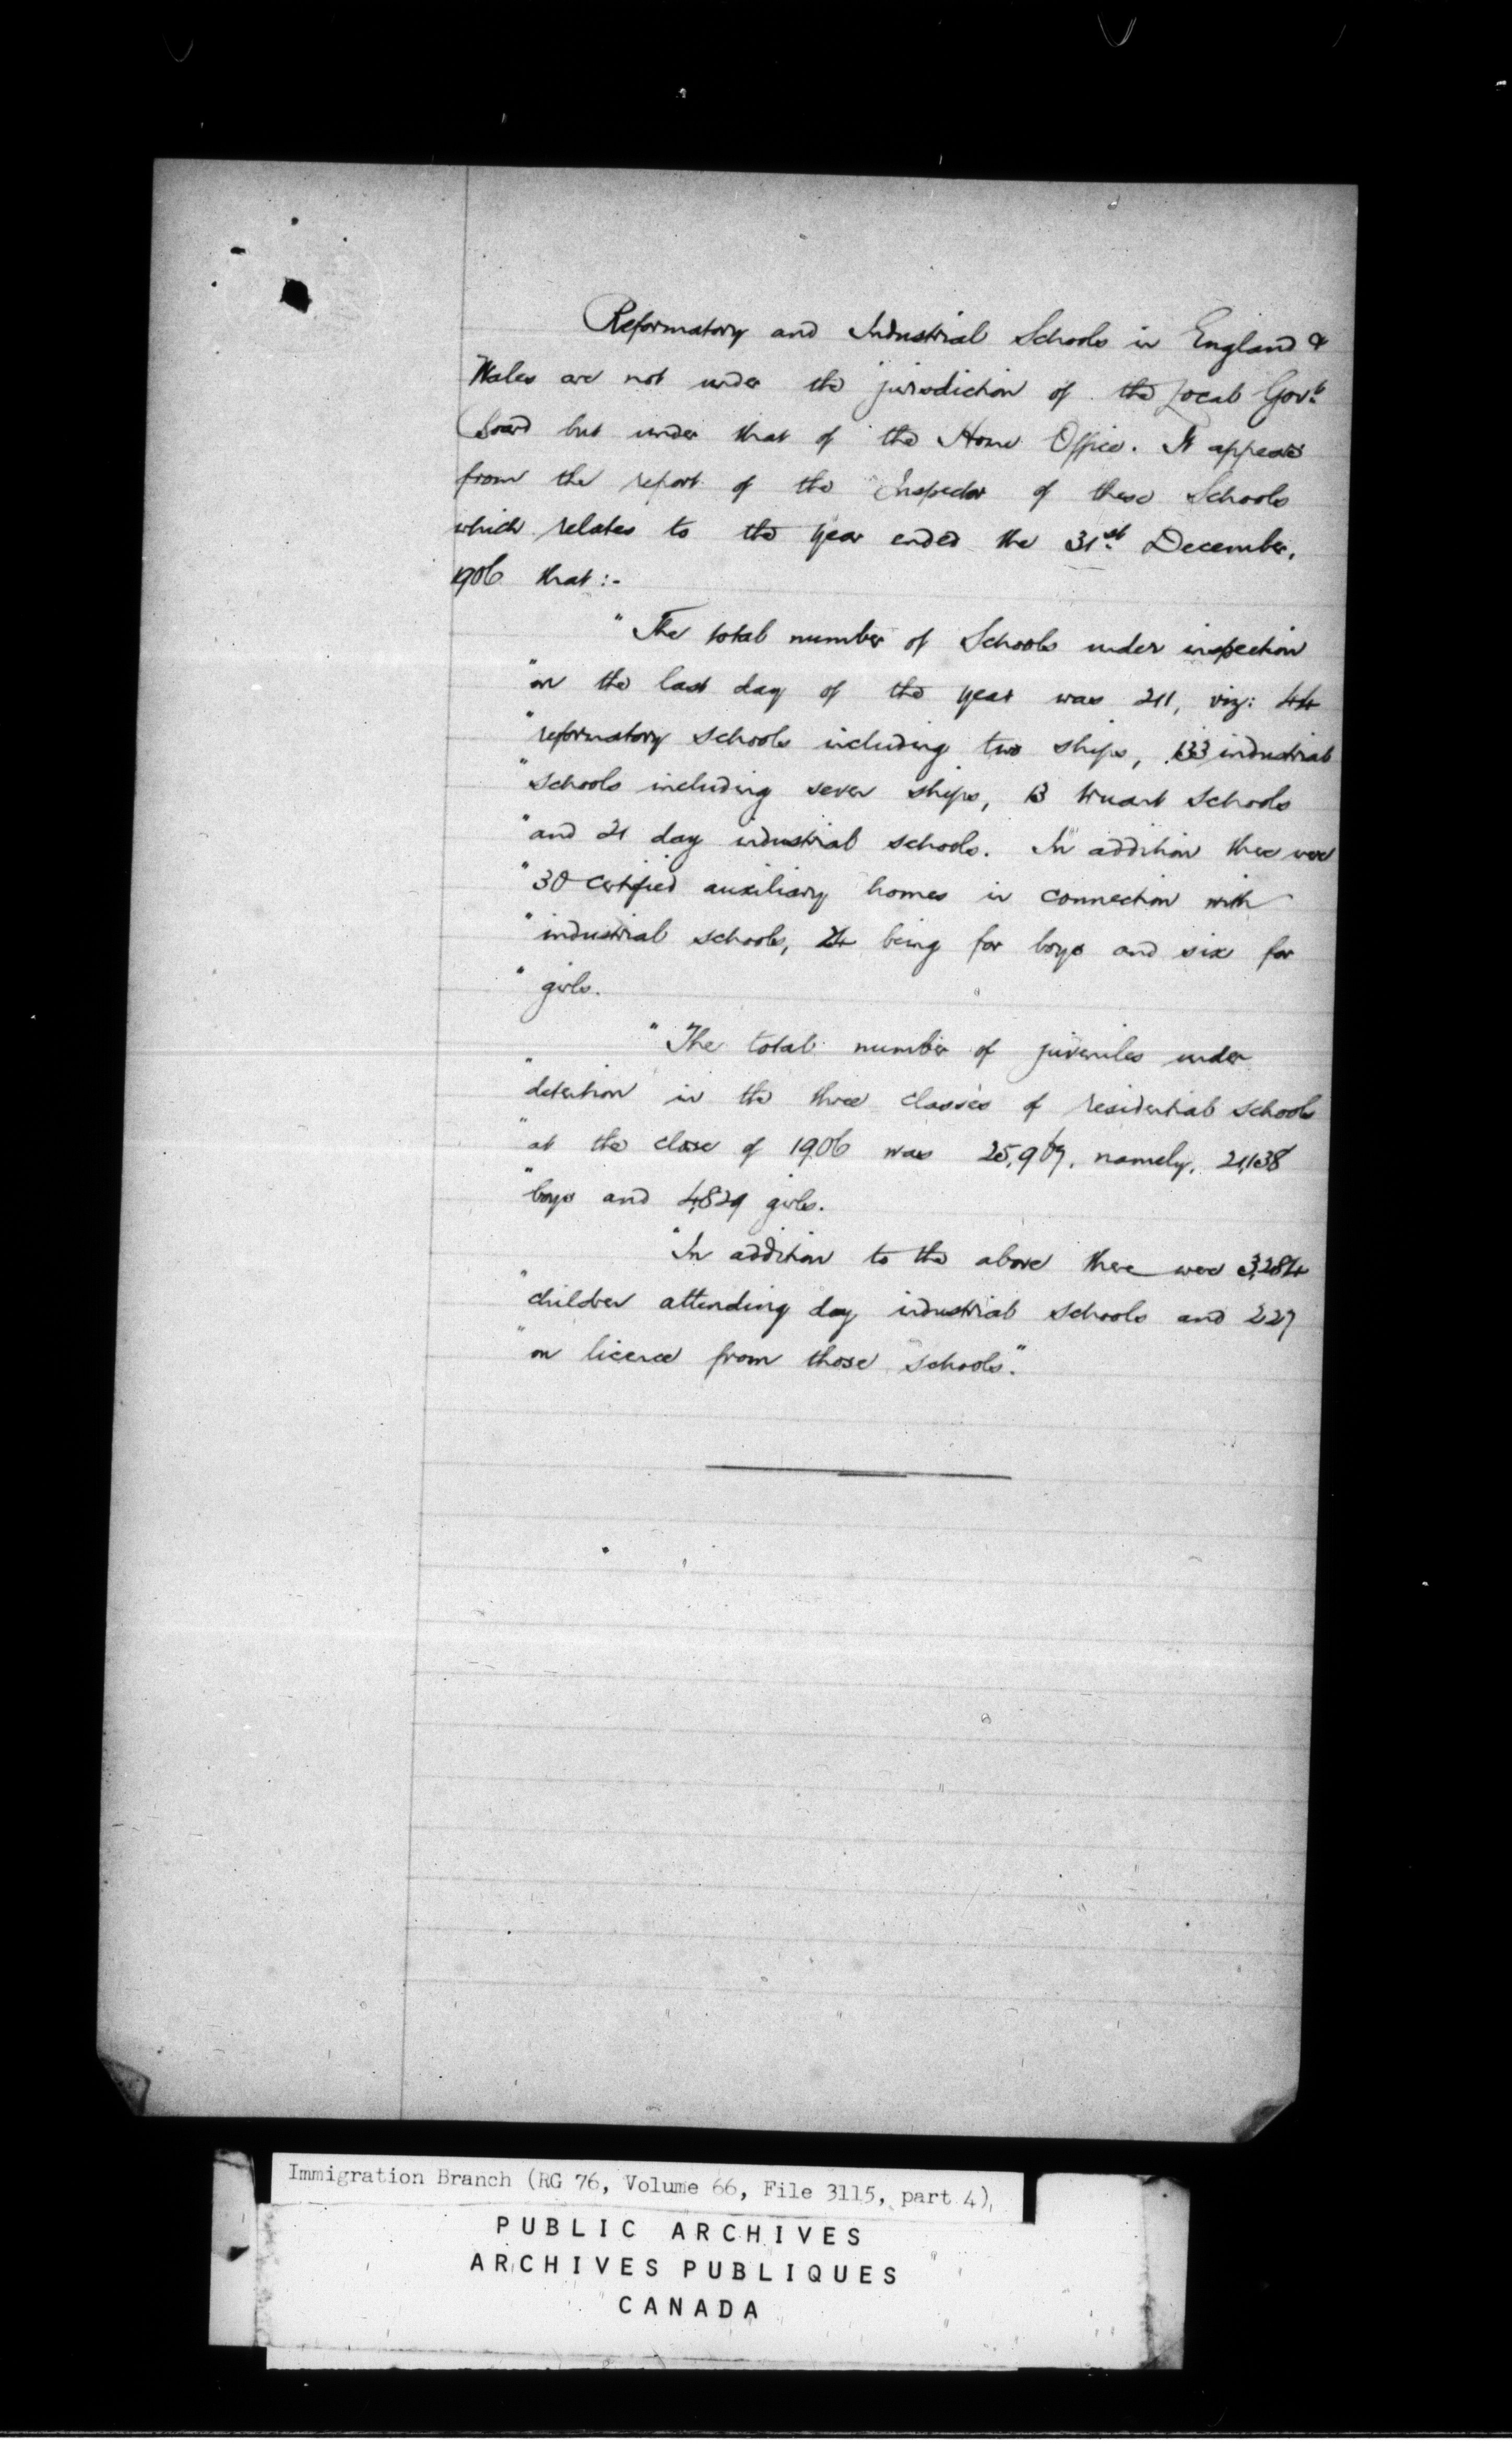 Reformatory and Industrial Schools in England &
Wales are not under the jurisdiction of the Local Govt.
Board but under that of the Home Office. It appears
from the report of the Inspector of these Schools
which relates to the year ended the 31st December,
1906 that :-
"The total number of Schools under inspection
"on the last day of the year was 211, viz: 44
"reformatory schools including two ships, 133 industrial
"schools including seven ships, 13 truant schools
"and 21 day industrial schools. In addition there were
"30 certified auxiliary homes in connection with
"industrial schools, 24 being for boys and six for
"girls.
"The total number of juveniles under
"detention in the three classes of residential schools
"at the close of 1906 was 25,967, namely, 21,138
"boys and 4,829 girls.
"In addition to the above there were 3,284
"children attending day industrial schools and 227
"on licence from those schools."
Immigration Branch (RG 76, Volume 66, File 3115, part 4)
PUBLIC ARCHIVES
ARCHIVES PUBLIQUES
CANADA